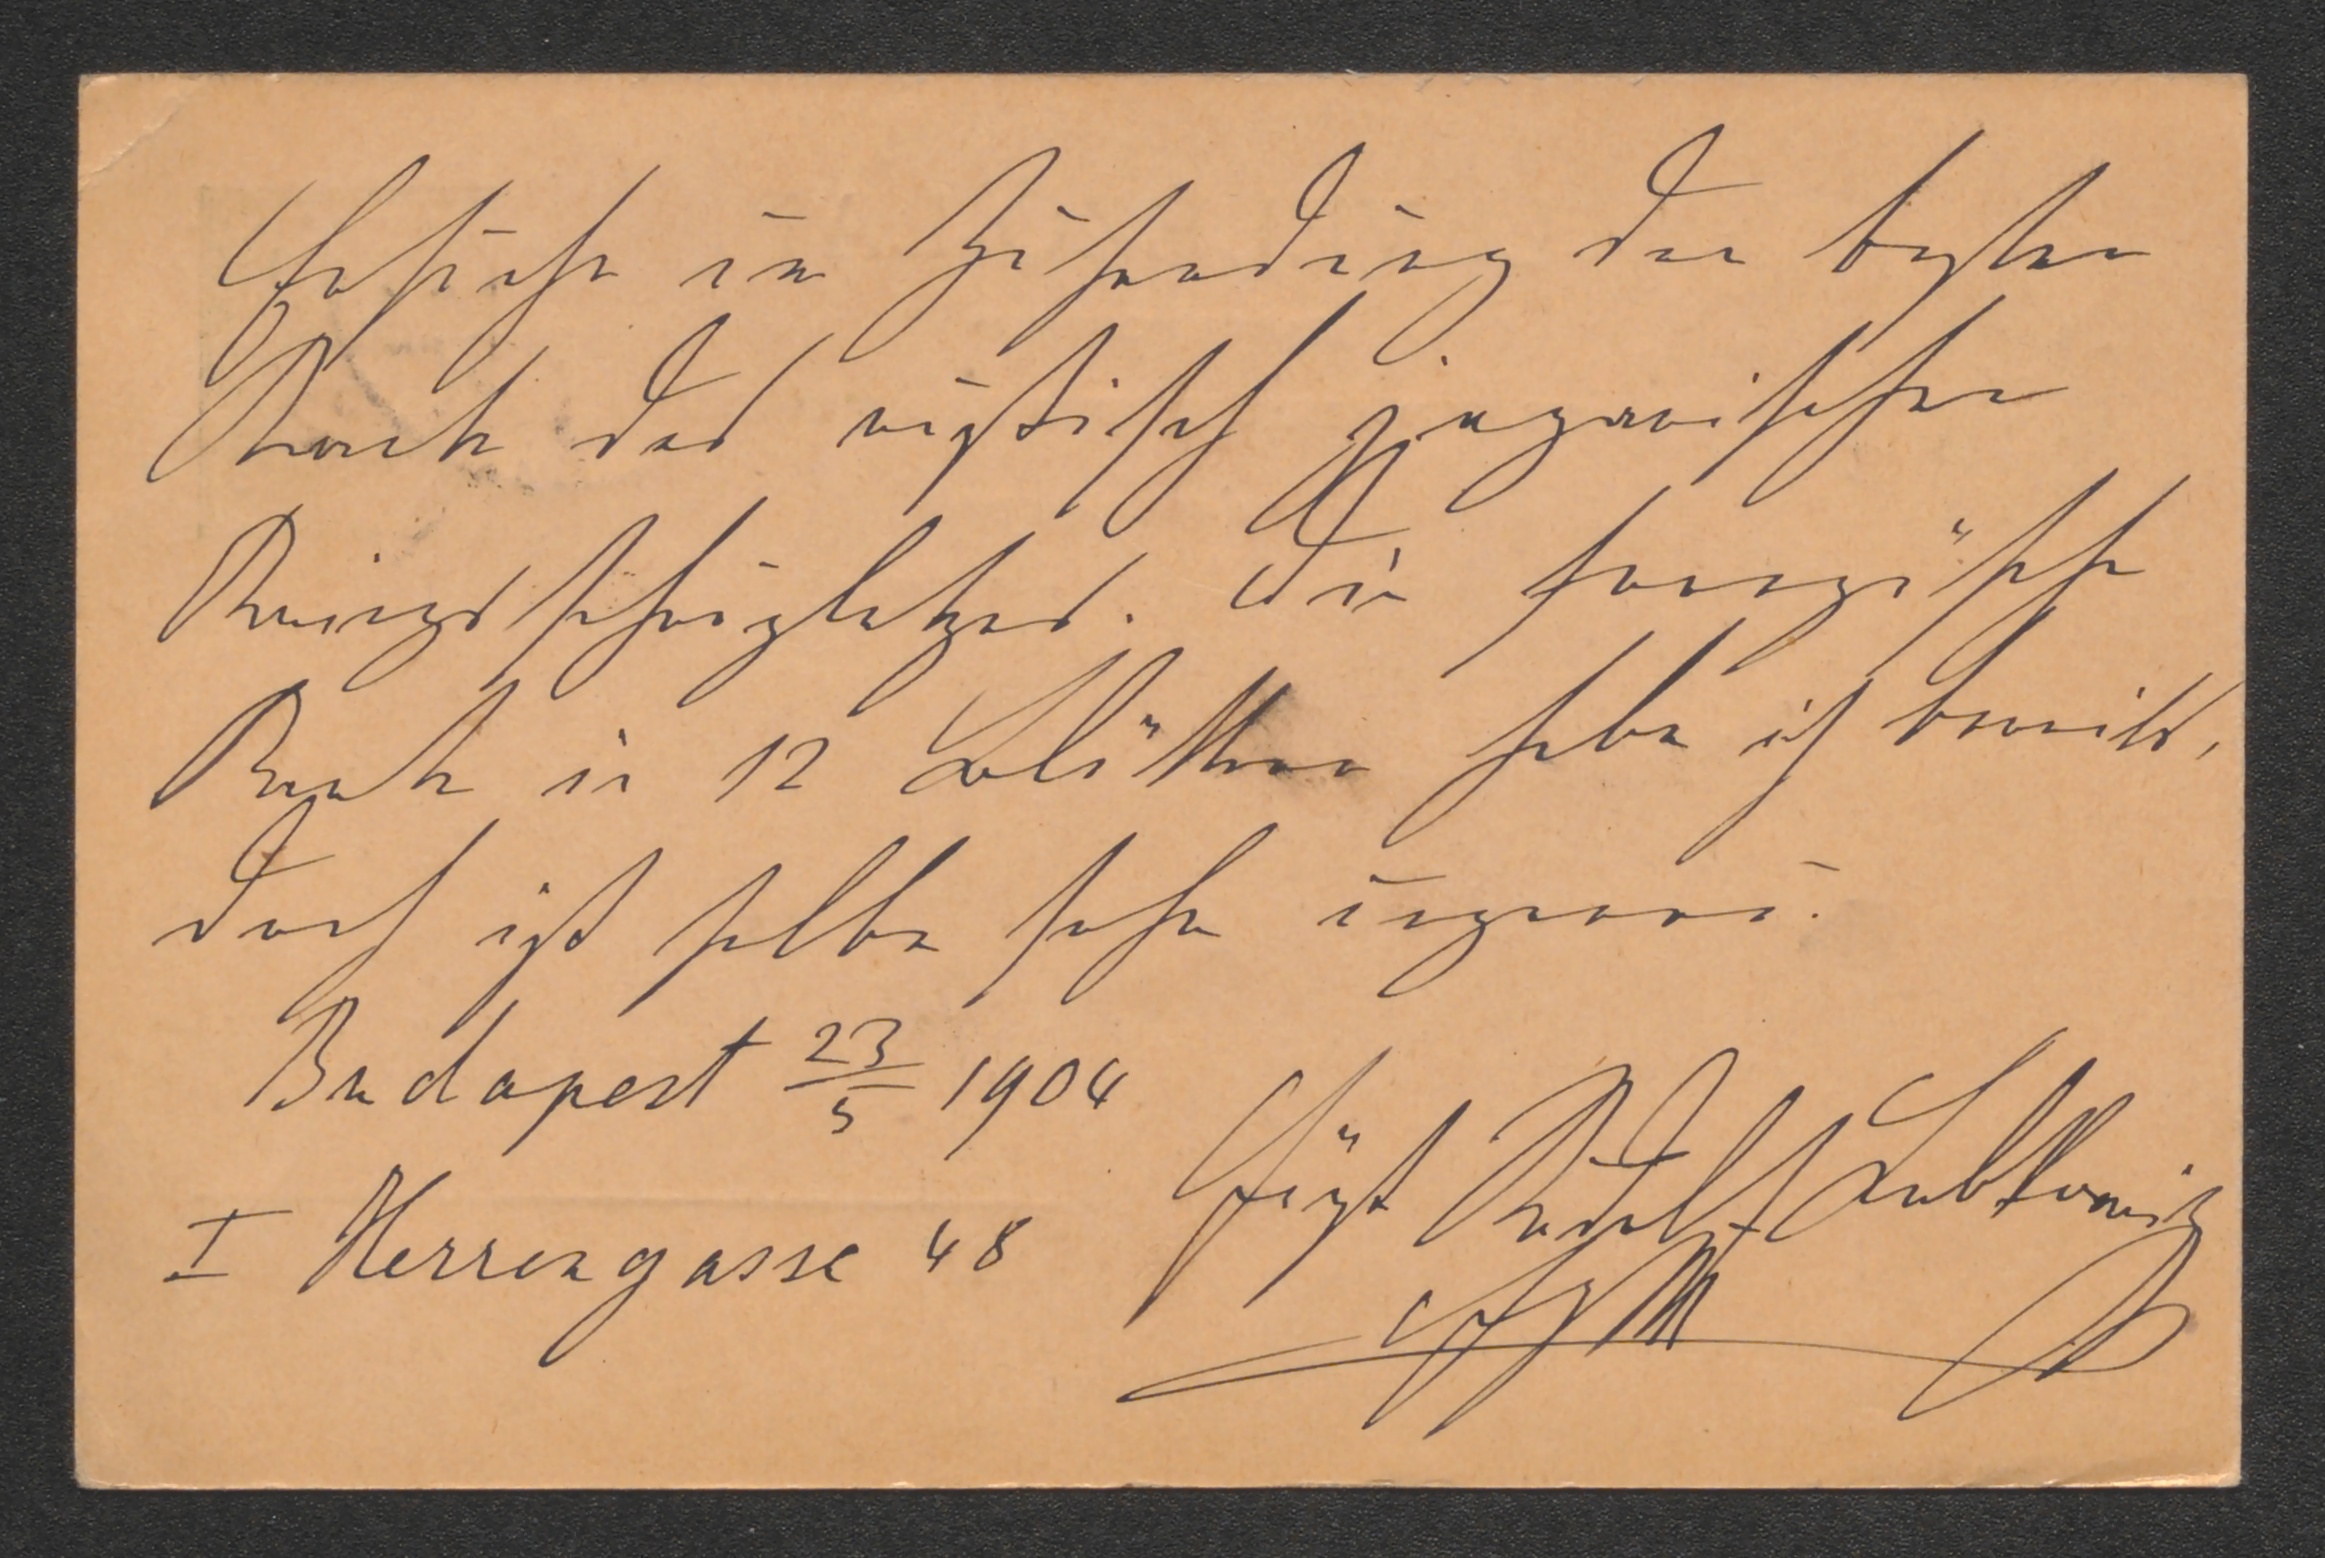 Ersuche um Zusendung der besten
Karte des russisch japanischen
Kriegsschauplatzes. Die französische
Karte in 12 Blättern habe ich bereits,
doch ist selbe sehr ungenau.
Budapest 23/5 1904
I Herrengasse 48
Fürst Rudolf Lobkowitz